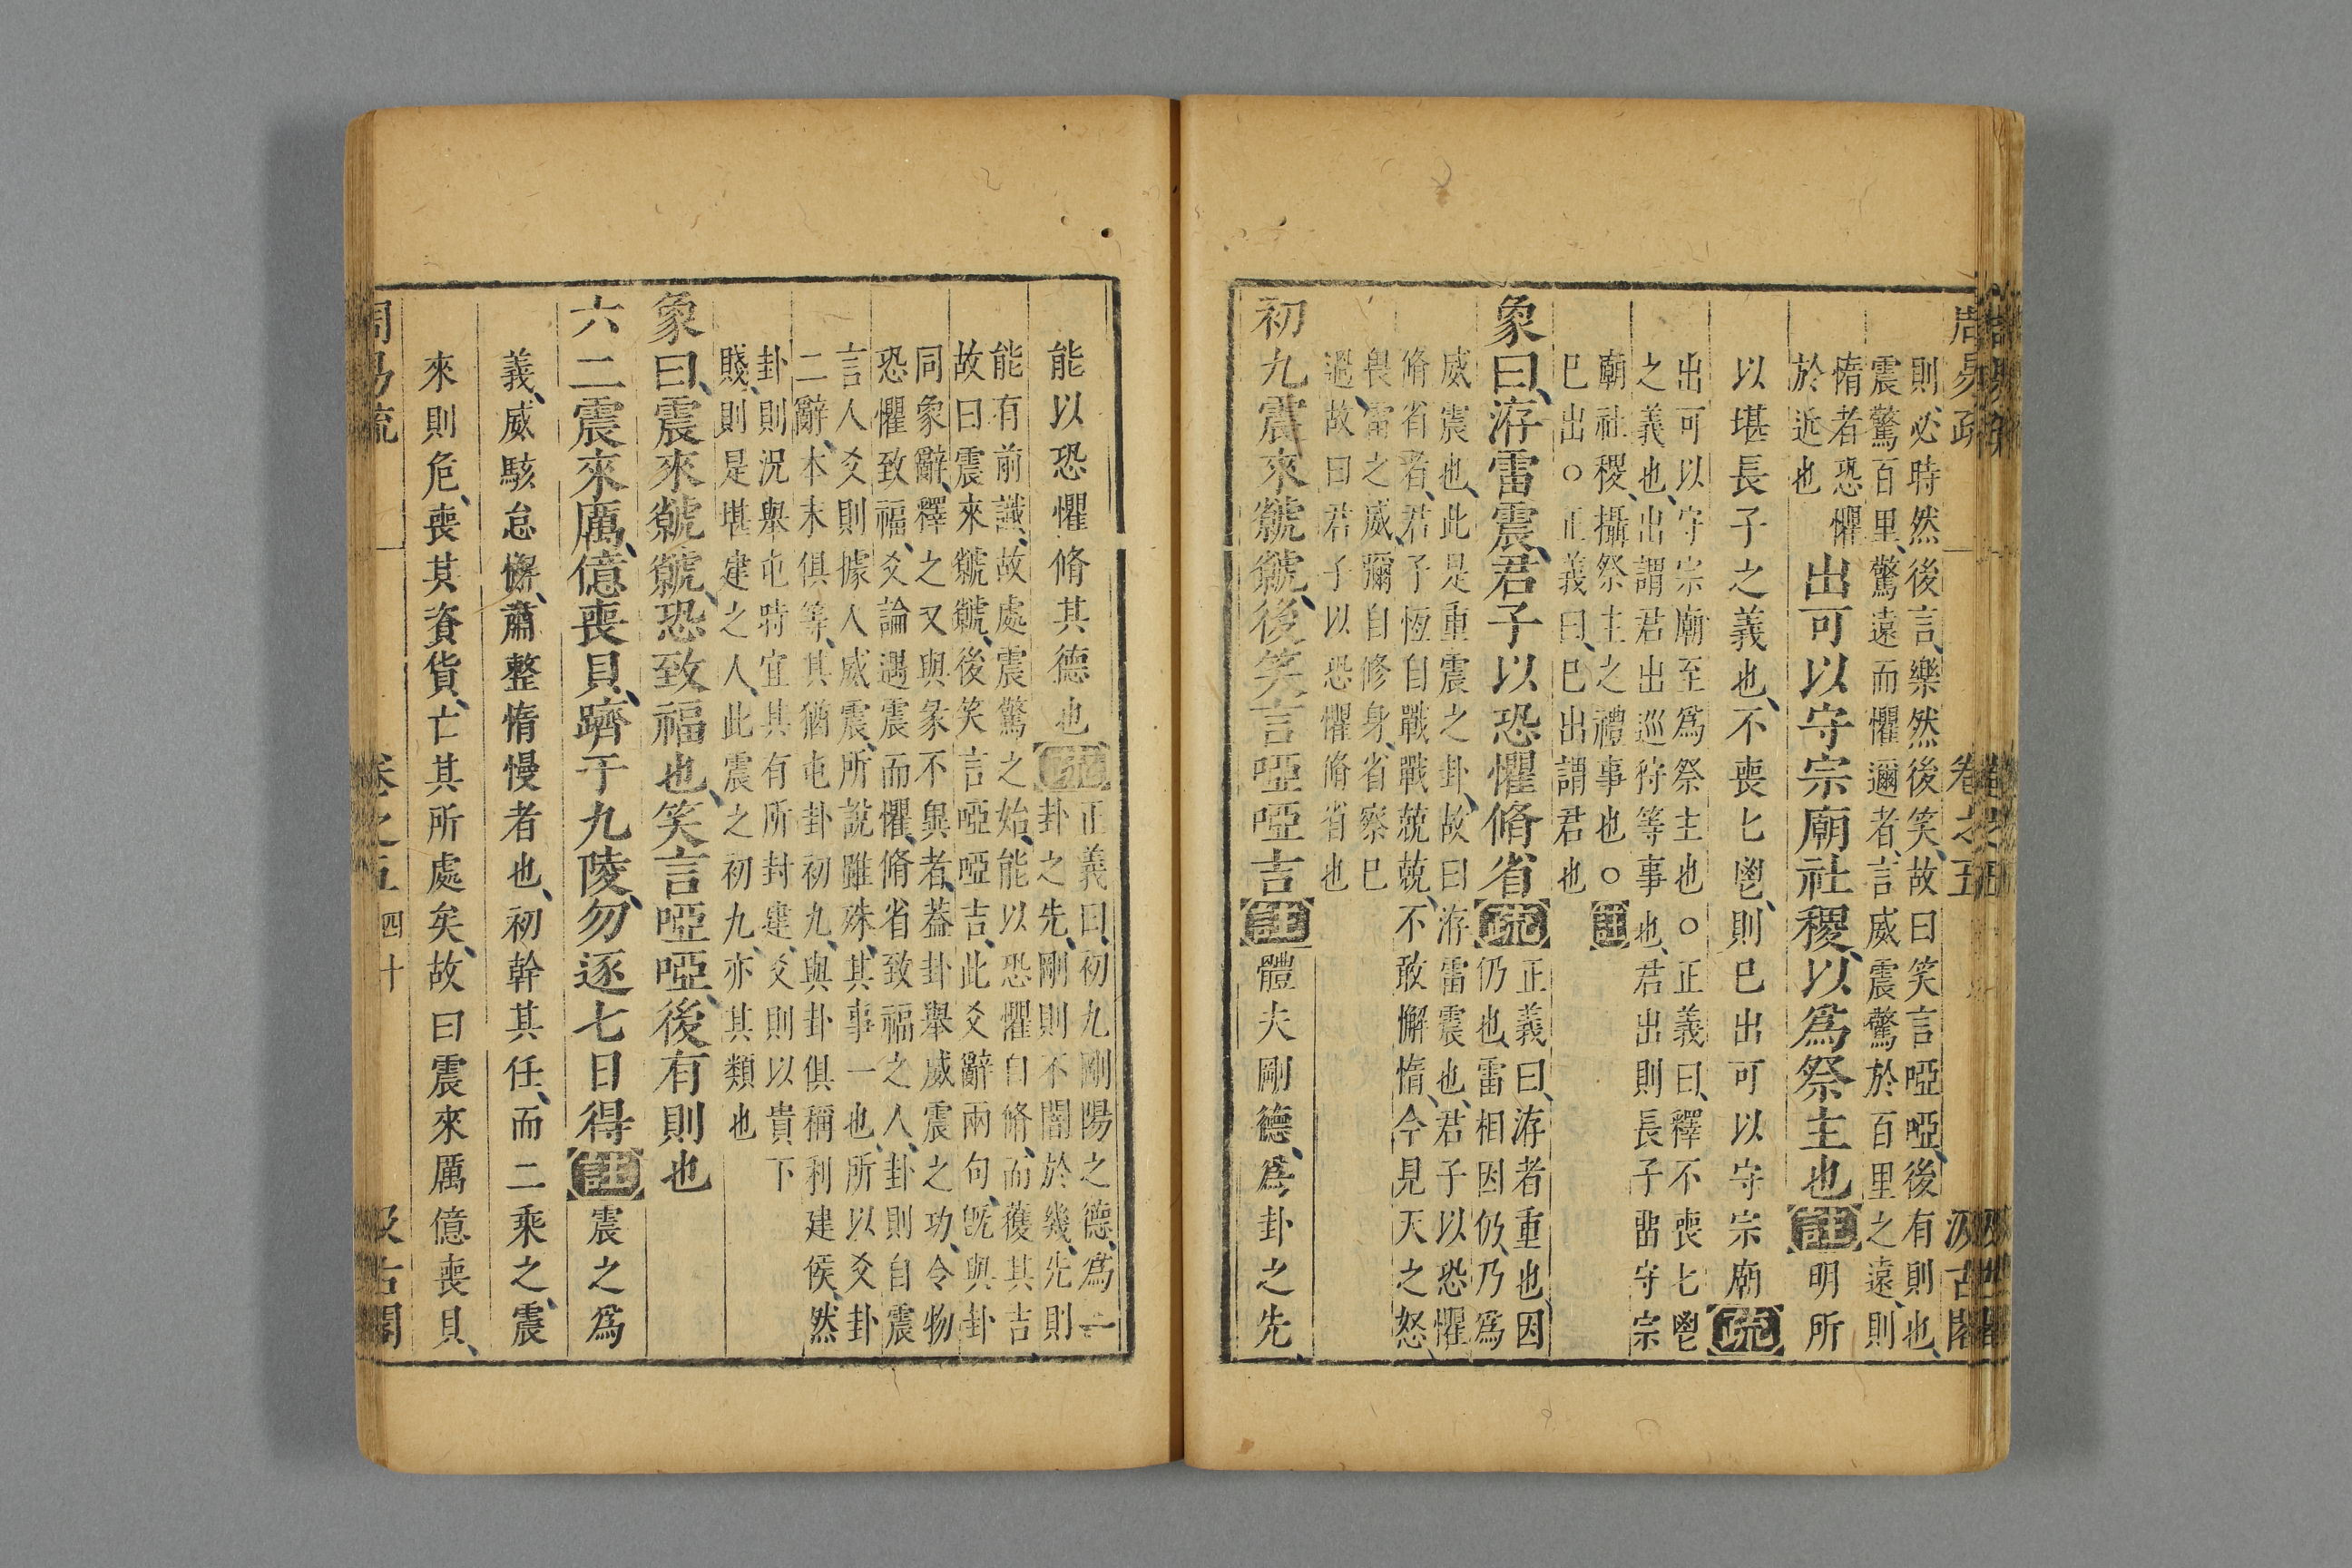 周易疏 卷之五 汲古閣
則必時然後言樂然後笑故曰笑言啞啞後有則也
震驚百里驚遠而懼邇者言威震驚於百里之遠則
惰者恐懼
於近也
出可以守宗廟社稷以爲祭主也註明所
以堪長子之義也不喪匕鬯則已出可以守宗廟疏
出可以守宗廟至爲祭主也○正義曰釋不喪匕鬯
之義也出謂君出巡狩等事也君出則長子畱守宗
廟社稷攝祭主之禮事也○註
已出○正義曰已出謂君也
象曰洊雷震君子以恐懼脩省疏
正義曰洊者重也因
仍也雷相因仍乃爲
威震也此是重震之卦故曰洊雷震也君子以恐懼
脩省者君子恆自戰戰兢兢不敢懈惰今見天之怒
畏雷之威彌自修身省察已
過故曰君子以恐懼脩省也
初九震來虩虩後笑言啞啞吉註體夫剛德爲卦之先
能以恐懼脩其德也疏
正義曰初九剛陽之德爲一
卦之先剛則不闇於幾先則
能有前識故處震驚之始能以恐懼自脩而獲其吉
故曰震來虩虩後笑言啞啞吉此爻辭兩句旣與卦
同象辭釋之又與彖不異者葢卦舉威震之功令物
恐懼致福爻論遇震而懼脩省致福之人卦則自震
言人爻則據人威震所說雖殊其事一也所以爻卦
二辭本末俱等其猶屯卦初九與卦俱稱利建侯然
卦則況舉屯時宜其有所封建爻則以貴下
賤則是堪建之人此震之初九亦其類也
象曰震來虩虩恐致福也笑言啞啞後有則也
六二震來厲億喪貝躋于九陵勿逐七日得註震之爲
義威駭怠懈肅整惰慢者也初幹其任而二乘之震
來則危喪其資貨亡其所處矣故曰震來厲億喪貝
周易疏 卷之五 四十 汲古閣